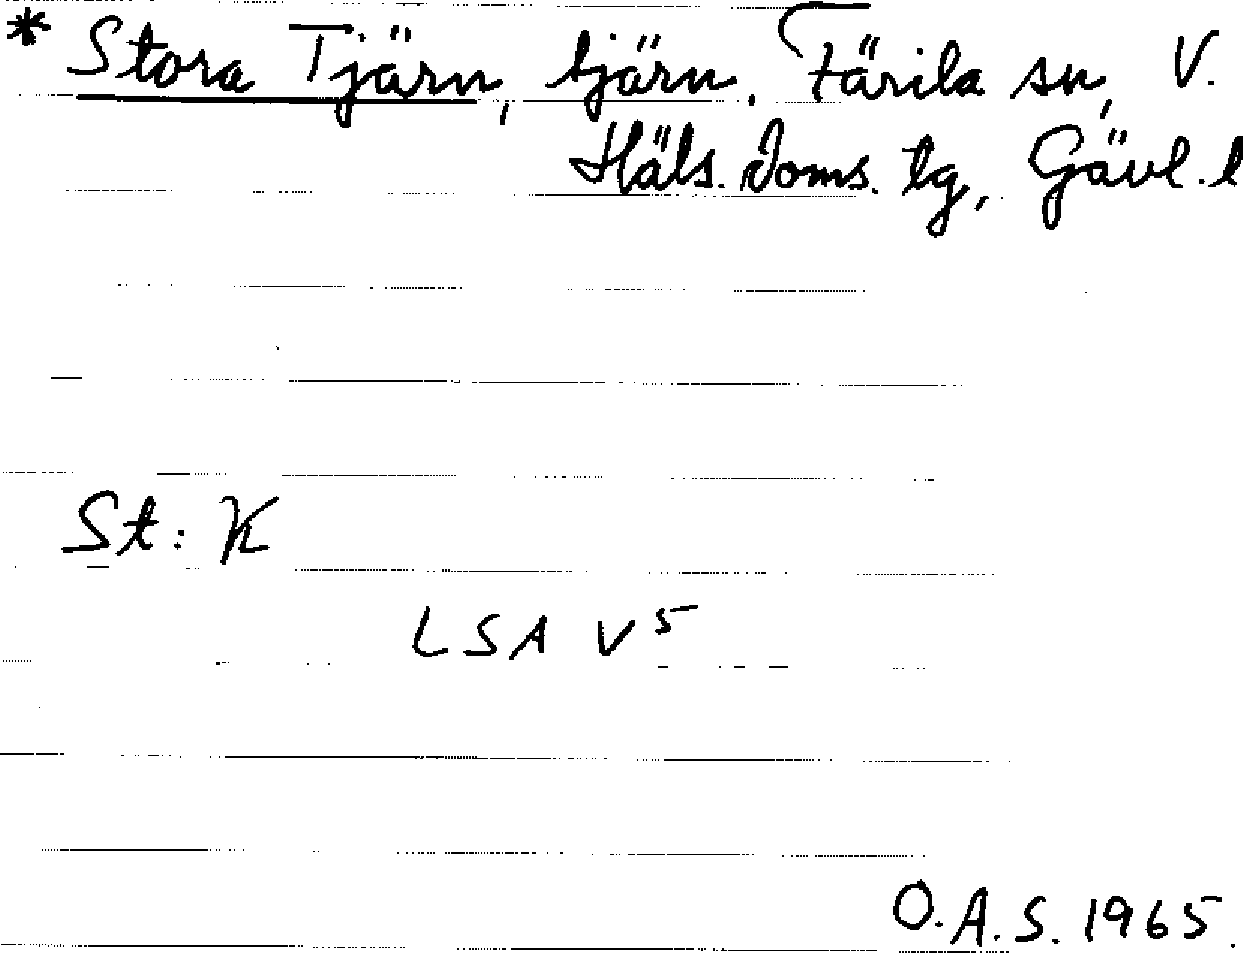 * Stora Tjärn, tjärn, Färila sn, V.
Häls. Doms. lg, Gävl. l
St: K
LSA V5
O.A.S. 1965.